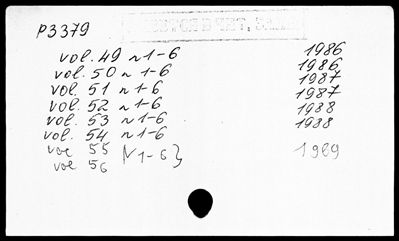 P3379
vol. 49 n 1-6 1986
vol. 50 n 1-6 1986
vol. 51 n 1-6 1987
vol. 52 n 1-6 1987
vol. 53 n 1-6 1988
vol. 54 n 1-6 1988
vol 55 [N 1-6} 1989
vol 56